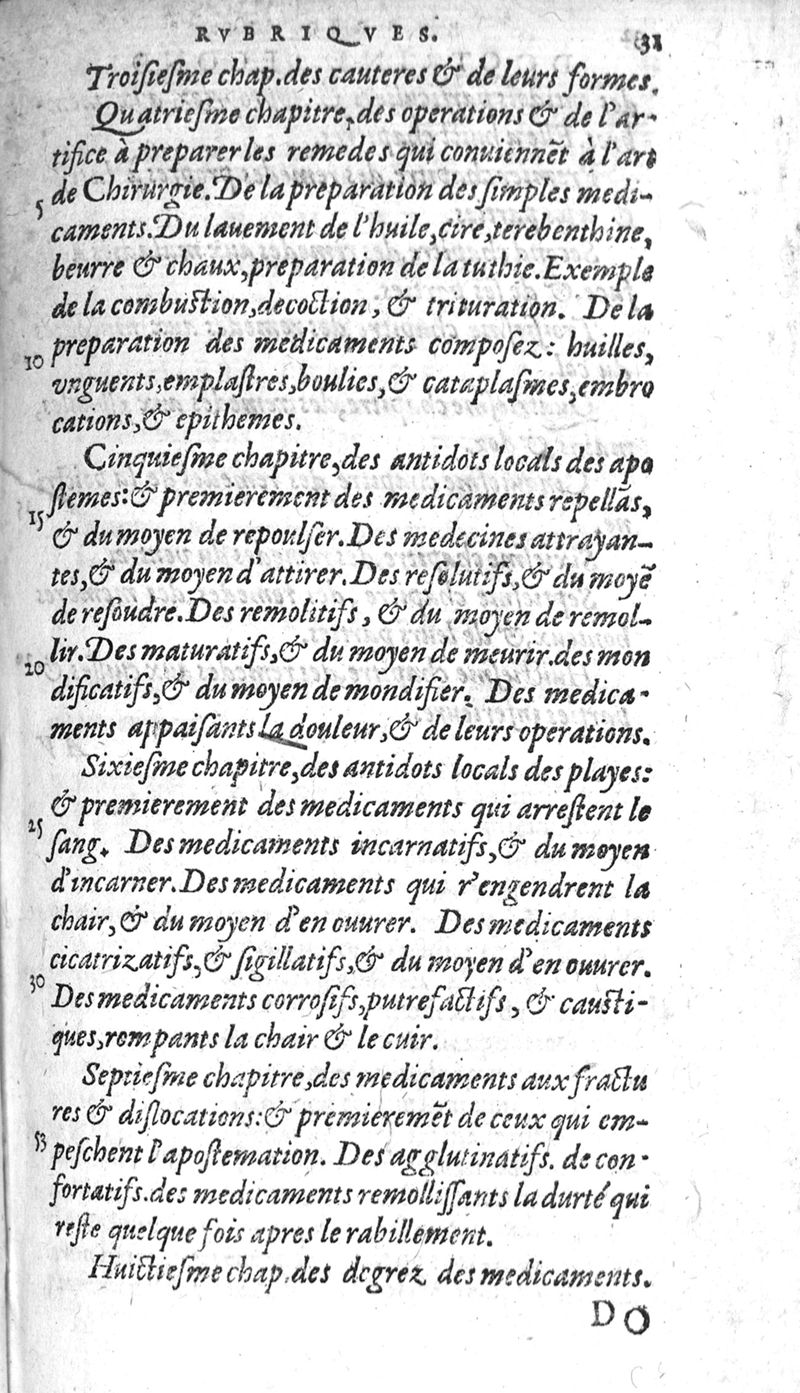 RVBRIQVES. 31
Troisiesme chap.des cauteres & de leurs formes.
Quatriesme chapitre,des operations & de l'ar-
tifice à preparer les remedes qui conuiennẽt à l'art
5 de Chirurgie.De la preparation des simples medi-
caments.Du lauement de l'huile,cire,terebenthine,
beurre & chaux,preparation de la tuthie.Exemple
de la combustion,decoction, & trituration. De la
10 preparation des medicaments composez: huilles,
vnguents,emplastres,boulies,& cataplasmes,embro
cations,& epithemes.
Cinquiesme chapitre,des antidots locals des apo
15 stemes:& premierement des medicaments repellãs,
& du moyen de repoulser.Des medecines attrayan-
tes,& du moyen d'attirer.Des resolutifs,& du moyẽ
de resoudre.Des remolitifs, & du moyen de remol-
20 lir.Des maturatifs,& du moyen de meurir.des mon
dificatifs,& du moyen de mondifier. Des medica-
ments appaisants la douleur,& de leurs operations.
Sixiesme chapitre,des antidots locals des playes:
& premierement des medicaments qui arrestent le
25 sang. Des medicaments incarnatifs,& du moyen
d'incarner.Des medicaments qui r'engendrent la
chair,& du moyen d'en ouurer. Des medicaments
cicatrizatifs,& sigillatifs,& du moyen d'en ouurer.
30 Des medicaments corrosifs,putrefactifs, & causti-
ques,rompants la chair & le cuir.
Septiesme chapitre,des medicaments aux fractu
res & dislocations:& premieremẽt de ceux qui em-
peschent l'apostemation. Des agglutinatifs. de con-
fortatifs.des medicaments remollissants la durté qui
reste quelque fois apres le rabillement.
Huictiesme chap.des degrez des medicaments.
DO